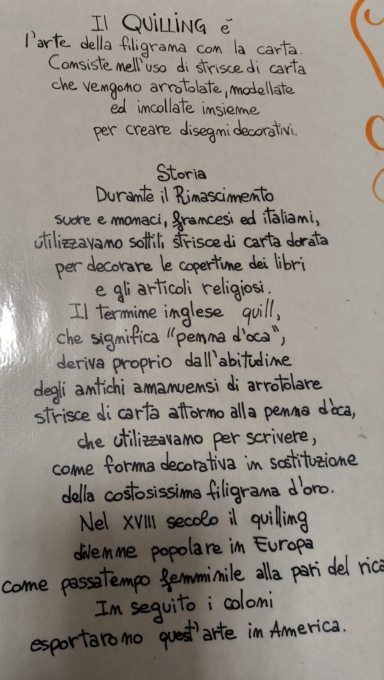 Il QUILLING é
l'arte della filigrana con la carta.
Consiste nell'uso di strisce di carta
che vengono arrotolate, modellate
ed incollate insieme
per creare disegni decorativi.
Storia
Durante il Rinascimento
suore e monaci, francesi ed italiani,
utilizzavano sottili strisce di carta dorata
per decorare le copertine dei libri
e gli articoli religiosi.
Il termine inglese quill,
che significa "penna d'oca",
deriva proprio dall'abitudine
degli antichi amanuensi di arrotolare
strisce di carta attorno alla penna d'oca,
che utilizzavano per scrivere,
come forma decorativa in sostituzione
della costosissima filigrana d'oro.
Nel XVIII secolo il quilling
divenne popolare in Europa
come passatempo femminile alla pari del rica
In seguito i coloni
esportarono quest'arte in America.